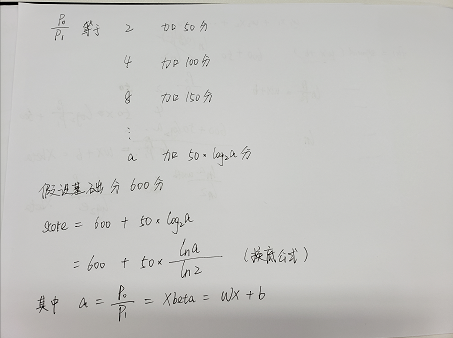 P₀/P₁ 等于 2 加50分
4 加100分
8 加150分
⋮
a 加 50*log₂a分
假设基础分 600分
score = 600 + 50*log₂a
= 600 + 50* lna/ln2 (换底公式)
其中 a = P₀/P₁ = Xbeta = WX + b